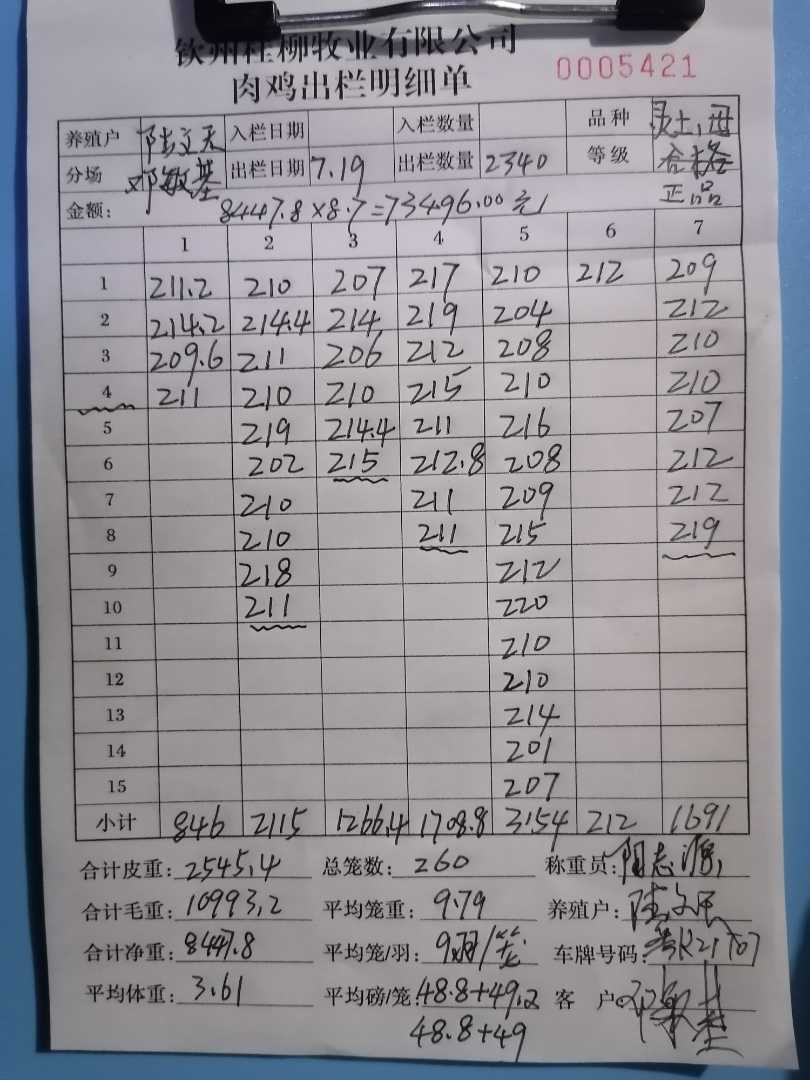 钦州桂柳牧业有限公司
肉鸡出栏明细单 0005421
养殖户 陆文天 入栏日期 入栏数量 品种 灵土,母
分场 邓敏基 出栏日期 7.19 出栏数量 2340 等级 合格
正品
金额: 8447.8×8.7=73496.00元
1 2 3 4 5 6 7
1 211.2 210 207 217 210 212 209
2 214.2 214.4 214 219 204 212
3 209.6 211 206 212 208 210
4 211 210 210 215 210 210
5 219 214.4 211 216 207
6 202 215 212.8 208 212
7 210 211 209 212
8 210 211 215 219
9 218 212
10 211 220
11 210
12 210
13 214
14 201
15 207
小计 846 2115 1266.4 1708.8 3154 212 1691
合计皮重: 2545.4 总笼数: 260 称重员:
合计毛重: 10993.2 平均笼重: 9.79 养殖户:
合计净重: 8447.8 平均笼/羽: 9羽/笼 车牌号码:
平均体重: 3.61 平均磅/笼: 48.8+49.2 客户
48.8+49